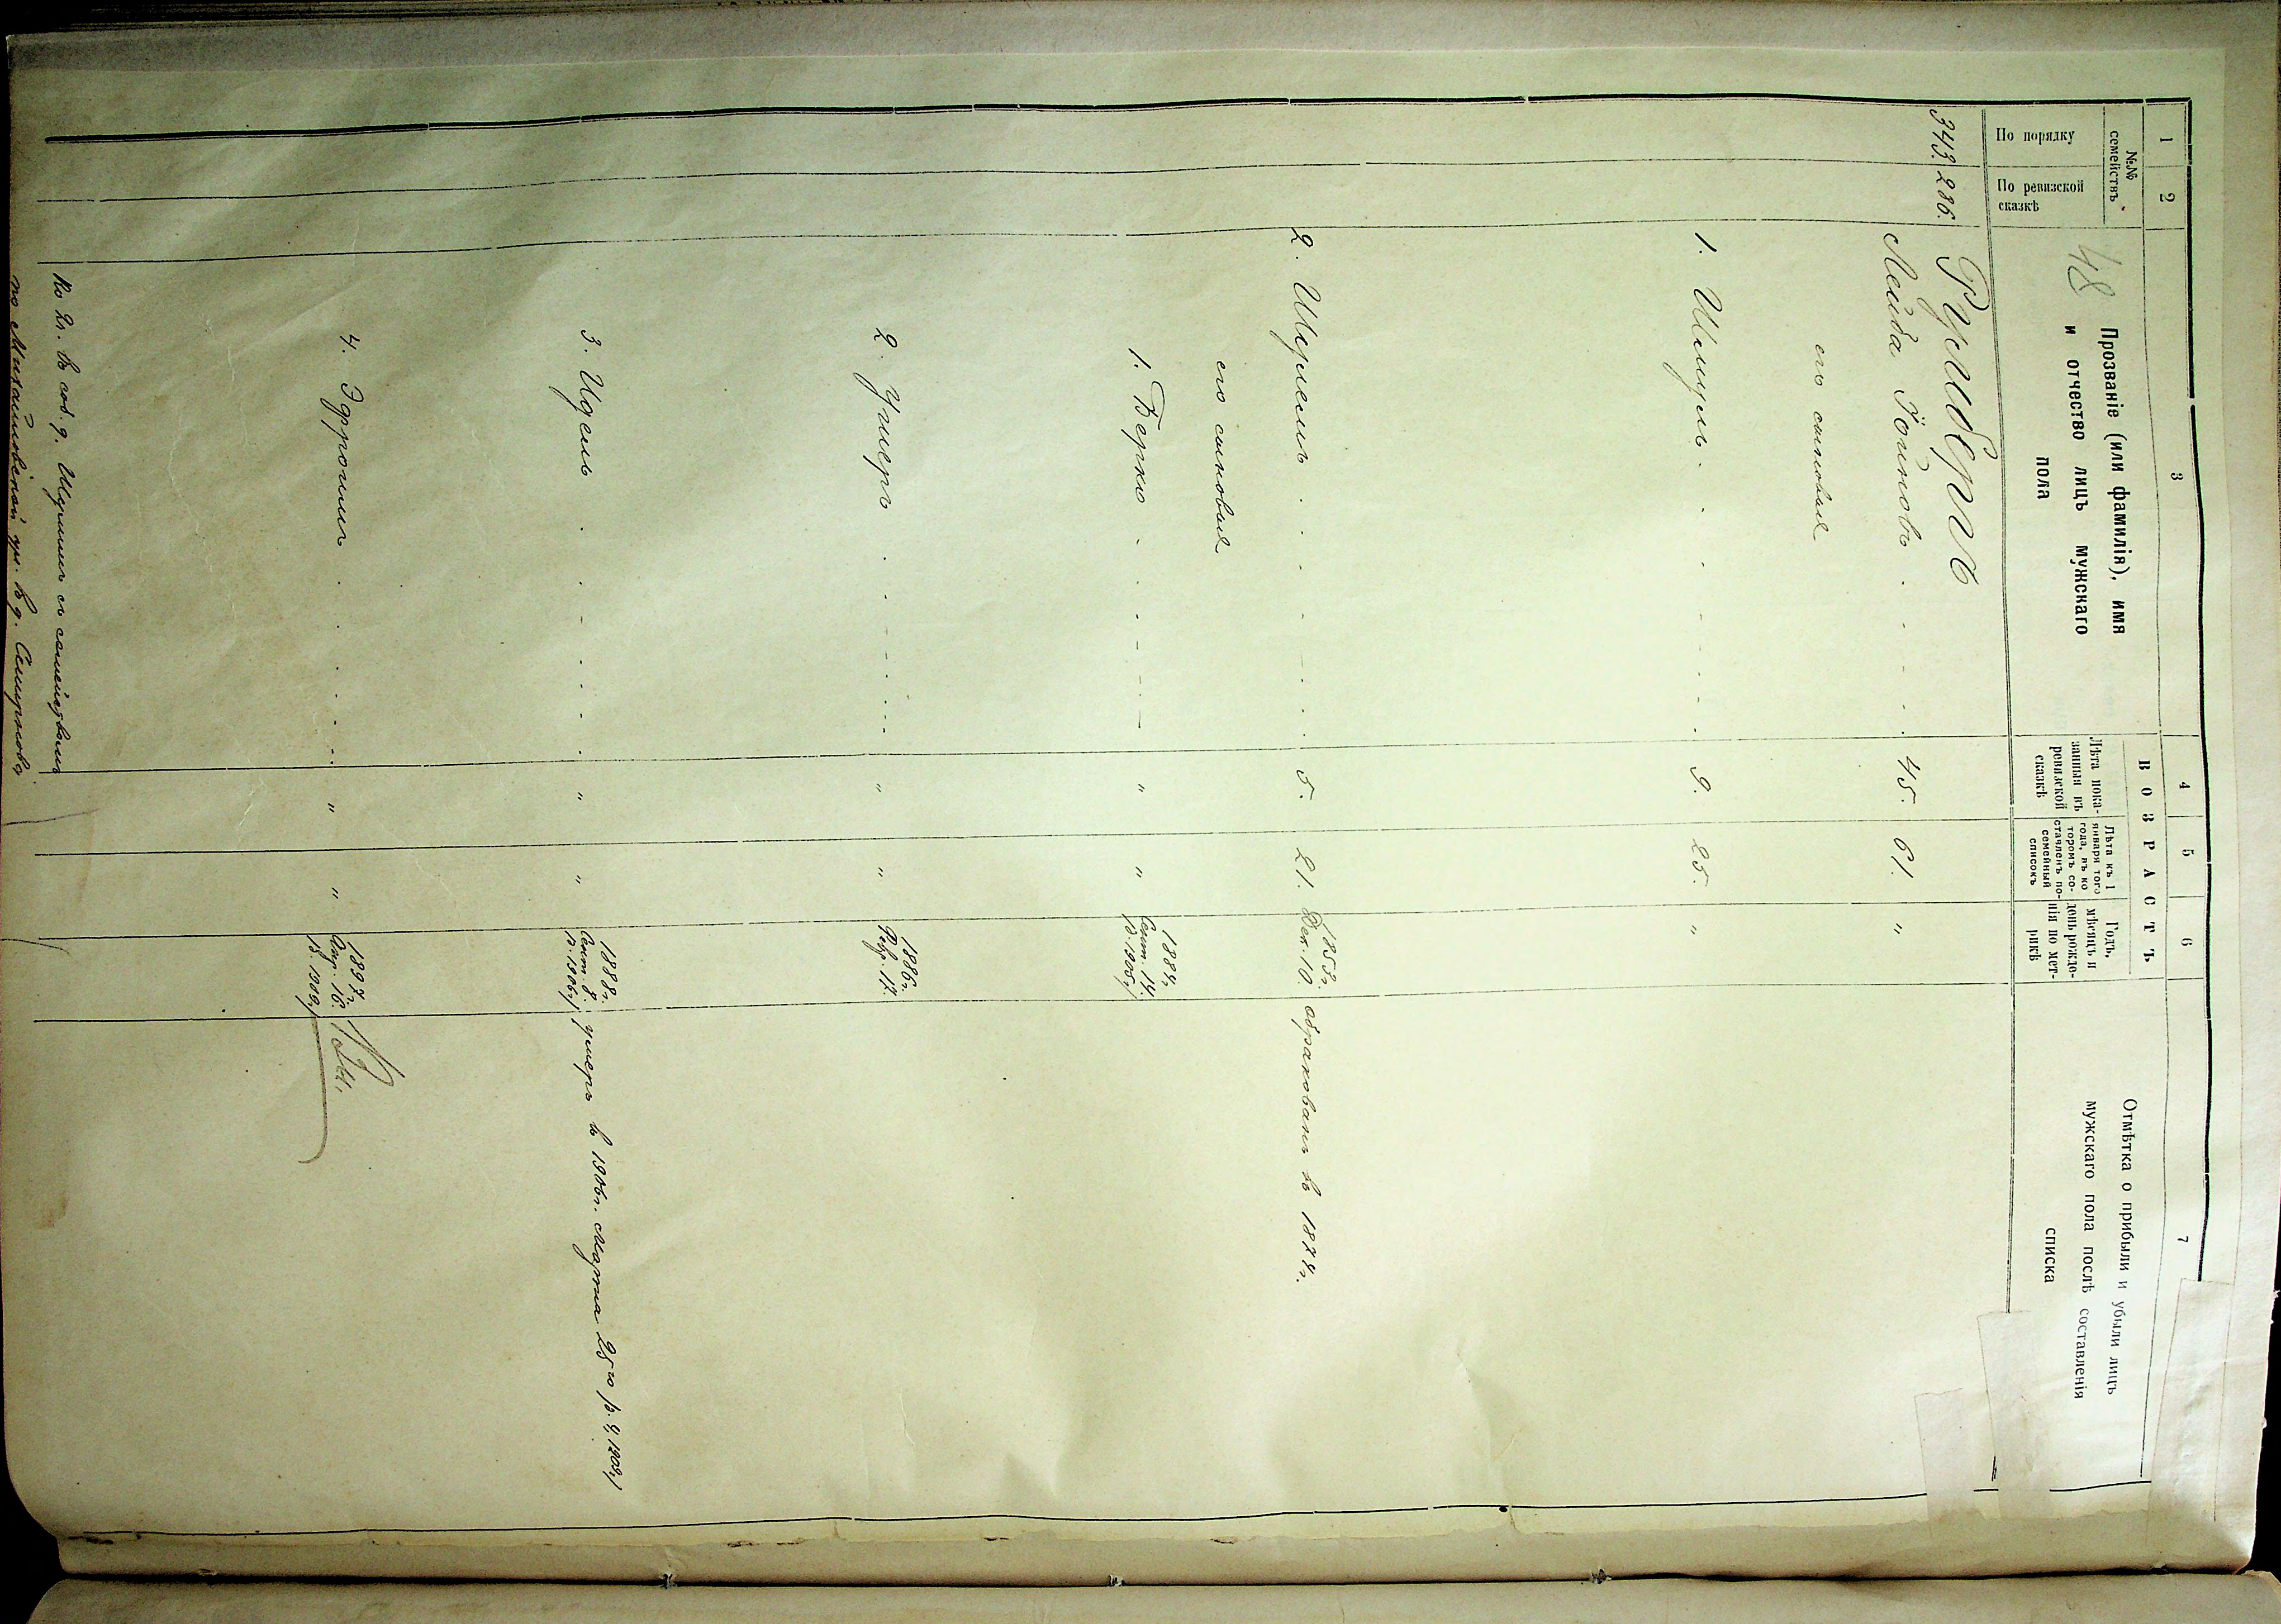 1 2 3 4 5 6 7
№№ семействъ
По порядку
По ревизской сказкѣ
Прозваніе (или фамилія), имя
и отчество лицъ мужскаго
пола
ВОЗРАСТЪ
Лѣта пока-
занныя въ
ревизской
сказкѣ
Лѣта къ 1
января того
года, въ ко
торомъ со-
ставленъ по-
семейный
списокъ
Годъ,
мѣсяцъ и
день рожде-
нія по мет-
рикѣ
Отмѣтка о прибыли и убыли лицъ
мужскаго пола послѣ составленія
списка
48
343. 286.
Лейба 45. 61. "
его сыновья
1. Шмулъ 9. 25. "
2. 5. 21. 1853г. Дек. 10. обракованъ въ 1874г.
его сыновья
1. Берко " " 1884г. Сент. 14. р. 1905г.
2. Ушеръ " " 1886г. Февр. 17.
3. Идель " " 1888г. Сент. 8. р. 1906г. умеръ въ 1906г. Марта 25го
4. Эфроимъ " " 1897г. Апр. 16. р. 1909г.
съ семействомъ
по